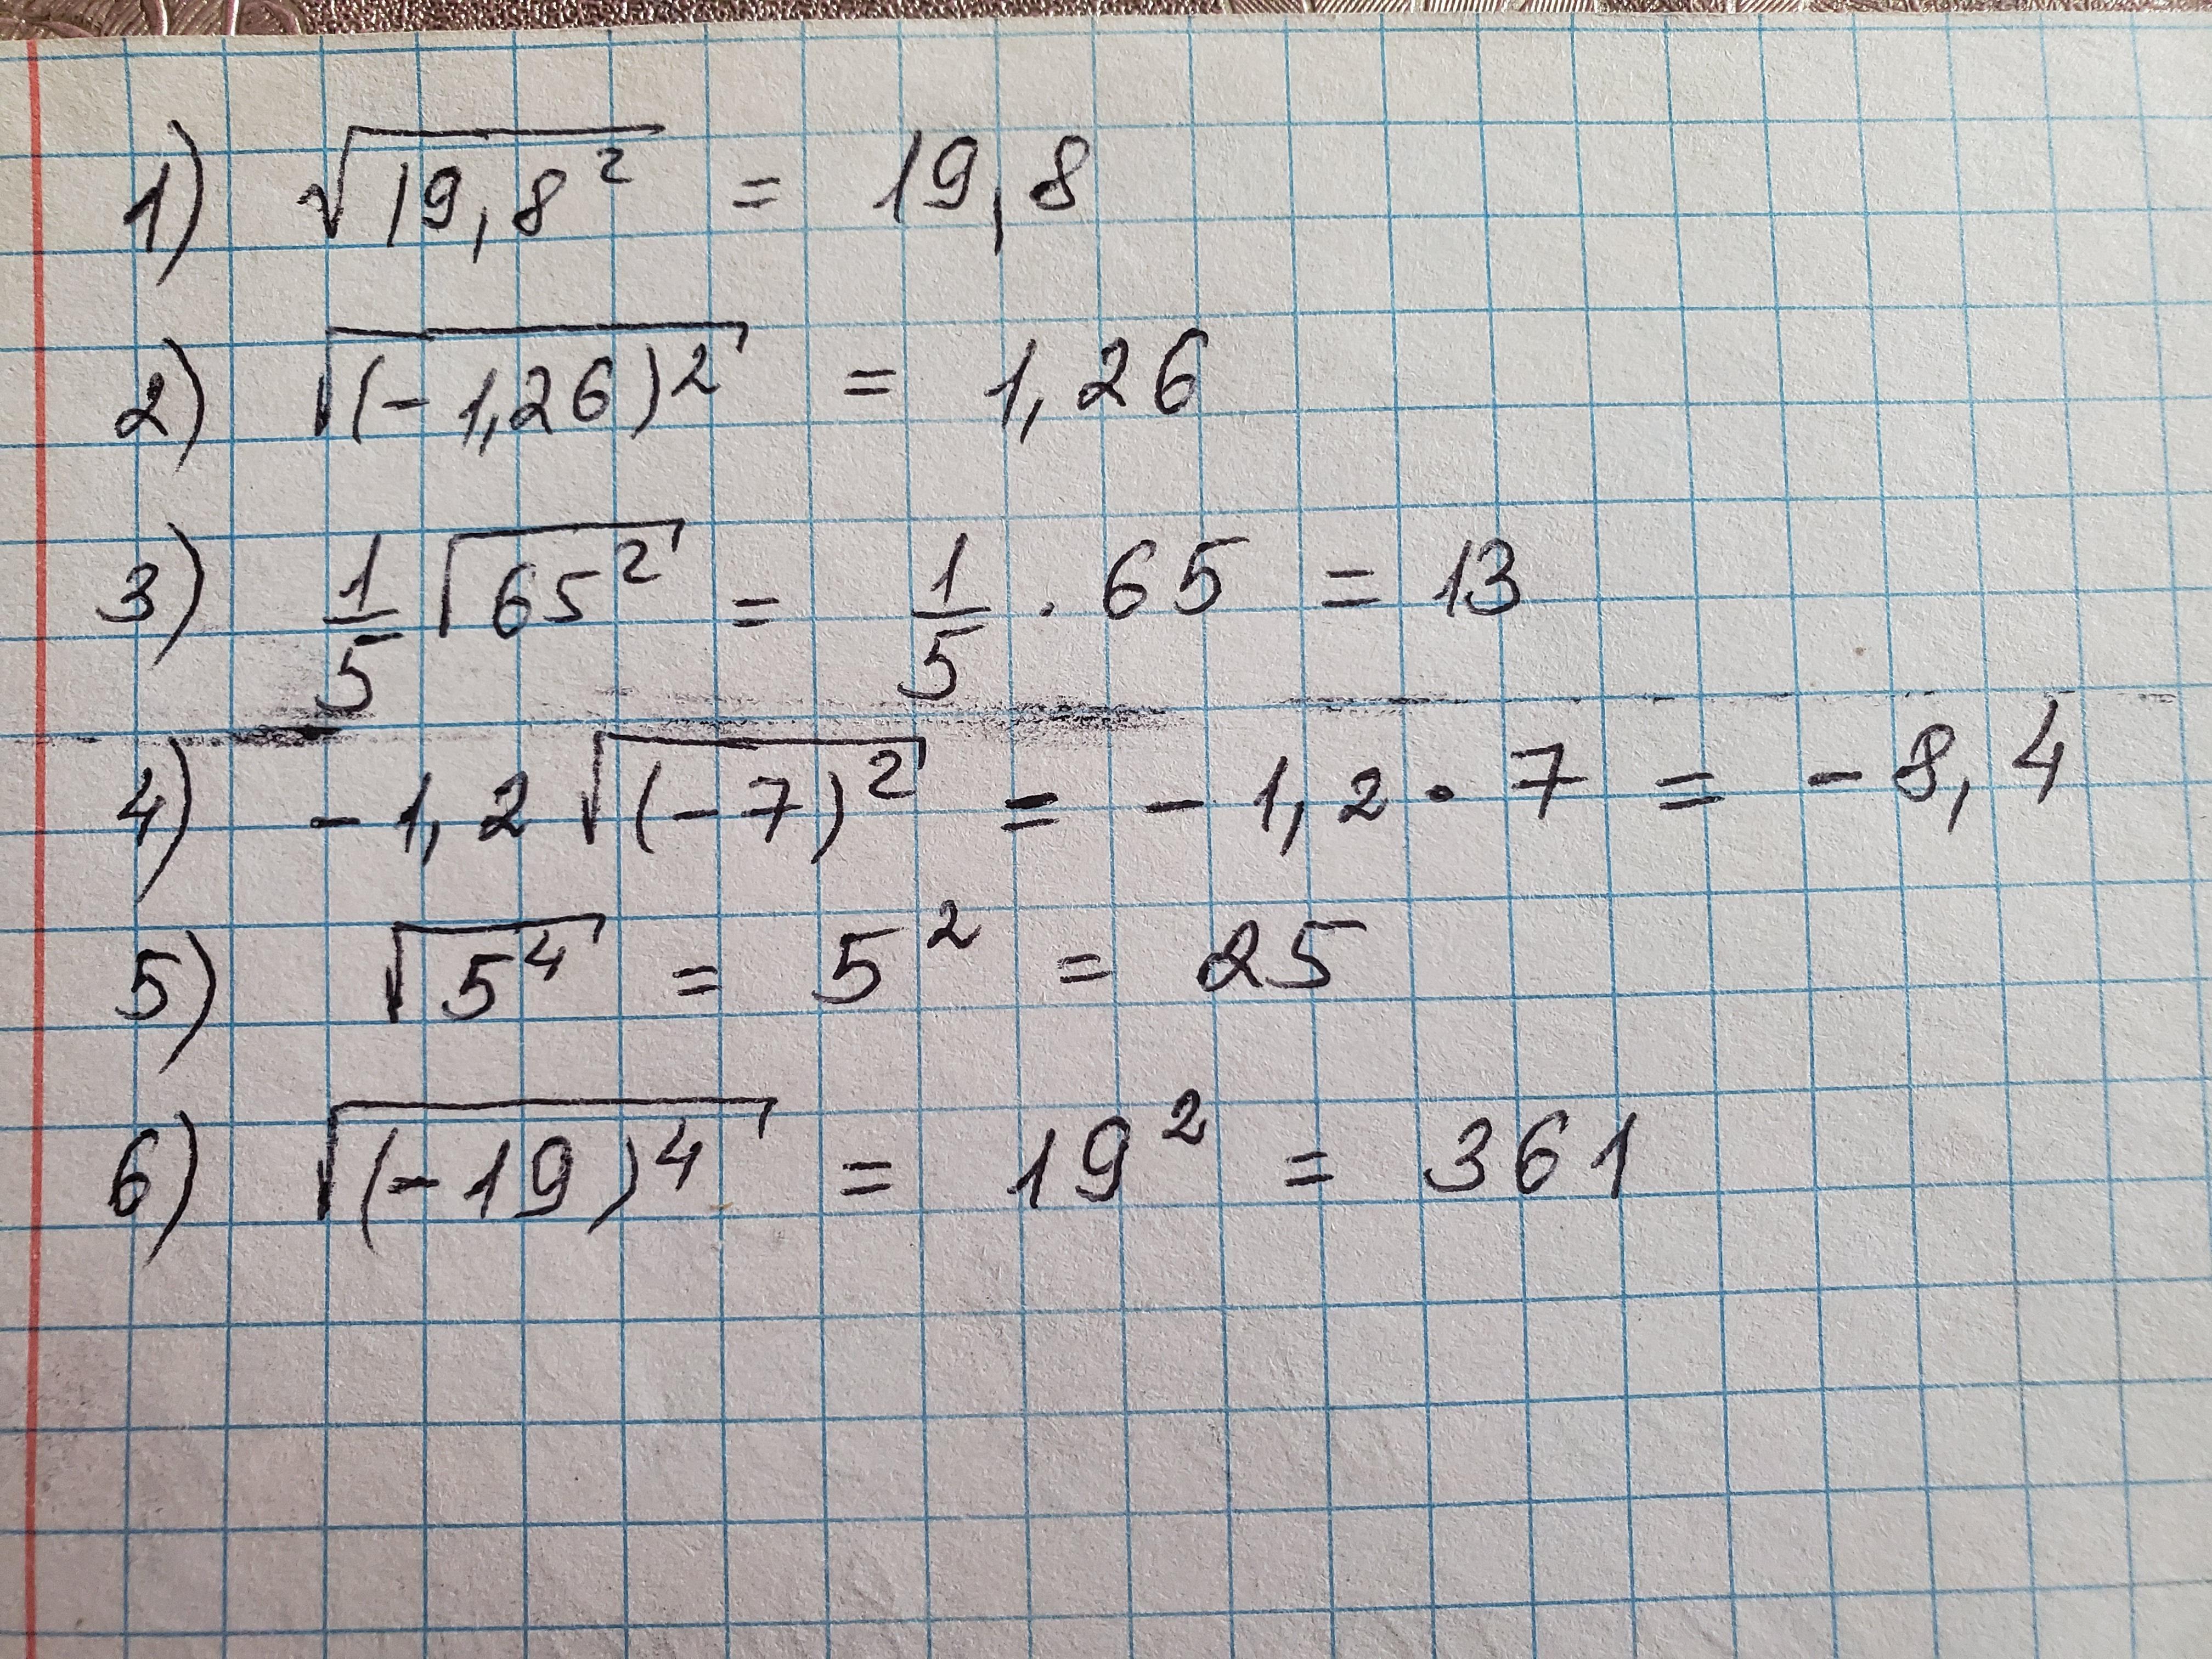 1) √(19,8²) = 19,8
2) √((-1,26)²) = 1,26
3) 1/5 √(65²) = 1/5 · 65 = 13
4) -1,2 √((-7)²) = -1,2 · 7 = -8,4
5) √(5⁴) = 5² = 25
6) √((-19)⁴) = 19² = 361